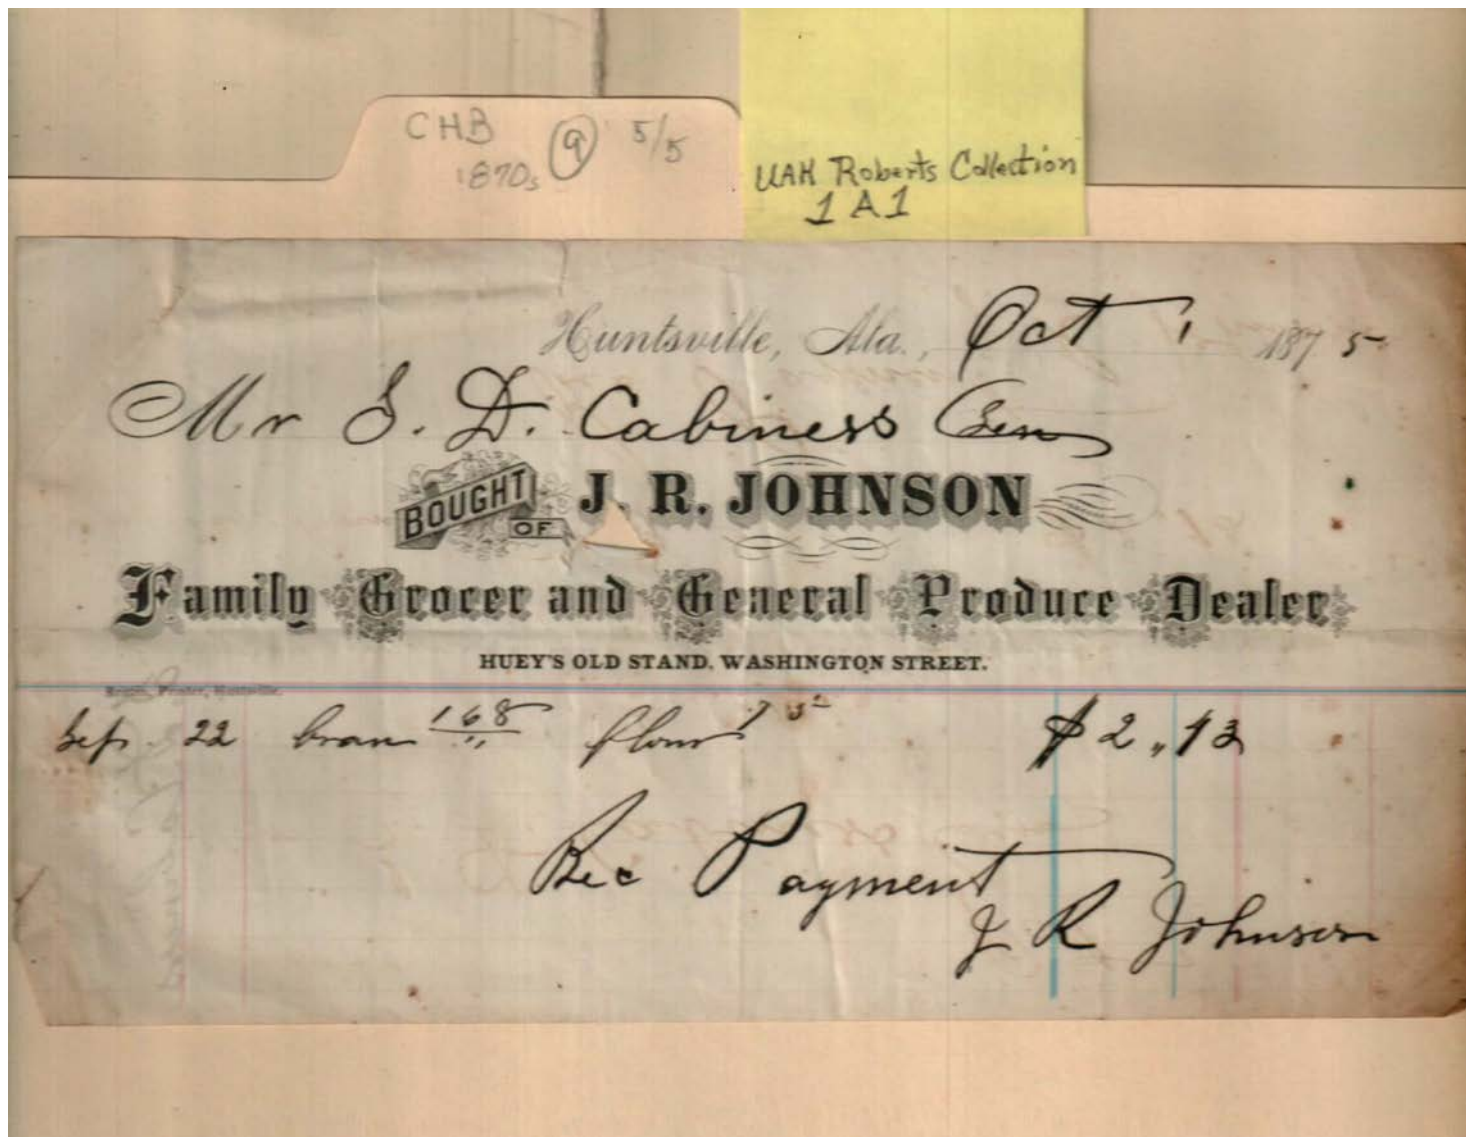 CHB ⑨ 5/5
1870s
UAH Roberts Collection
1 A 1
Huntsville, Ala., Oct 1 1875
Mr S. D. Cabiness
BOUGHT OF J. R. JOHNSON
Family Grocer and General Produce Dealer
HUEY'S OLD STAND, WASHINGTON STREET.
Printer, Huntsville.
Sep 22 bran 168 flour $2.13
Rec Payment
J R Johnson